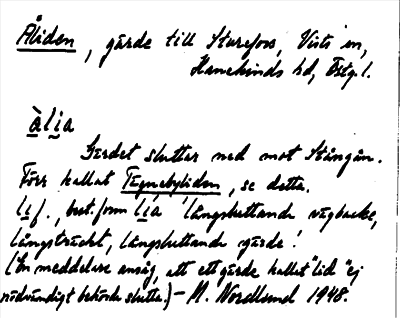 Åliden, gärde till Sturefors, Vists sn,
Hanekinds hd, Östg. l.
àlia
Gärdet sluttar ned mot Stångån.
Förr kallat Tegnebyliden, se detta.
lif., best. form lia 'långsluttande vägbacke,
långsträckt, långsluttande gärde'.
(En meddelare ansåg, att ett gärde kallat "lid" ej
nödvändigt behövde slutta.) – M. Nordlund 1948.